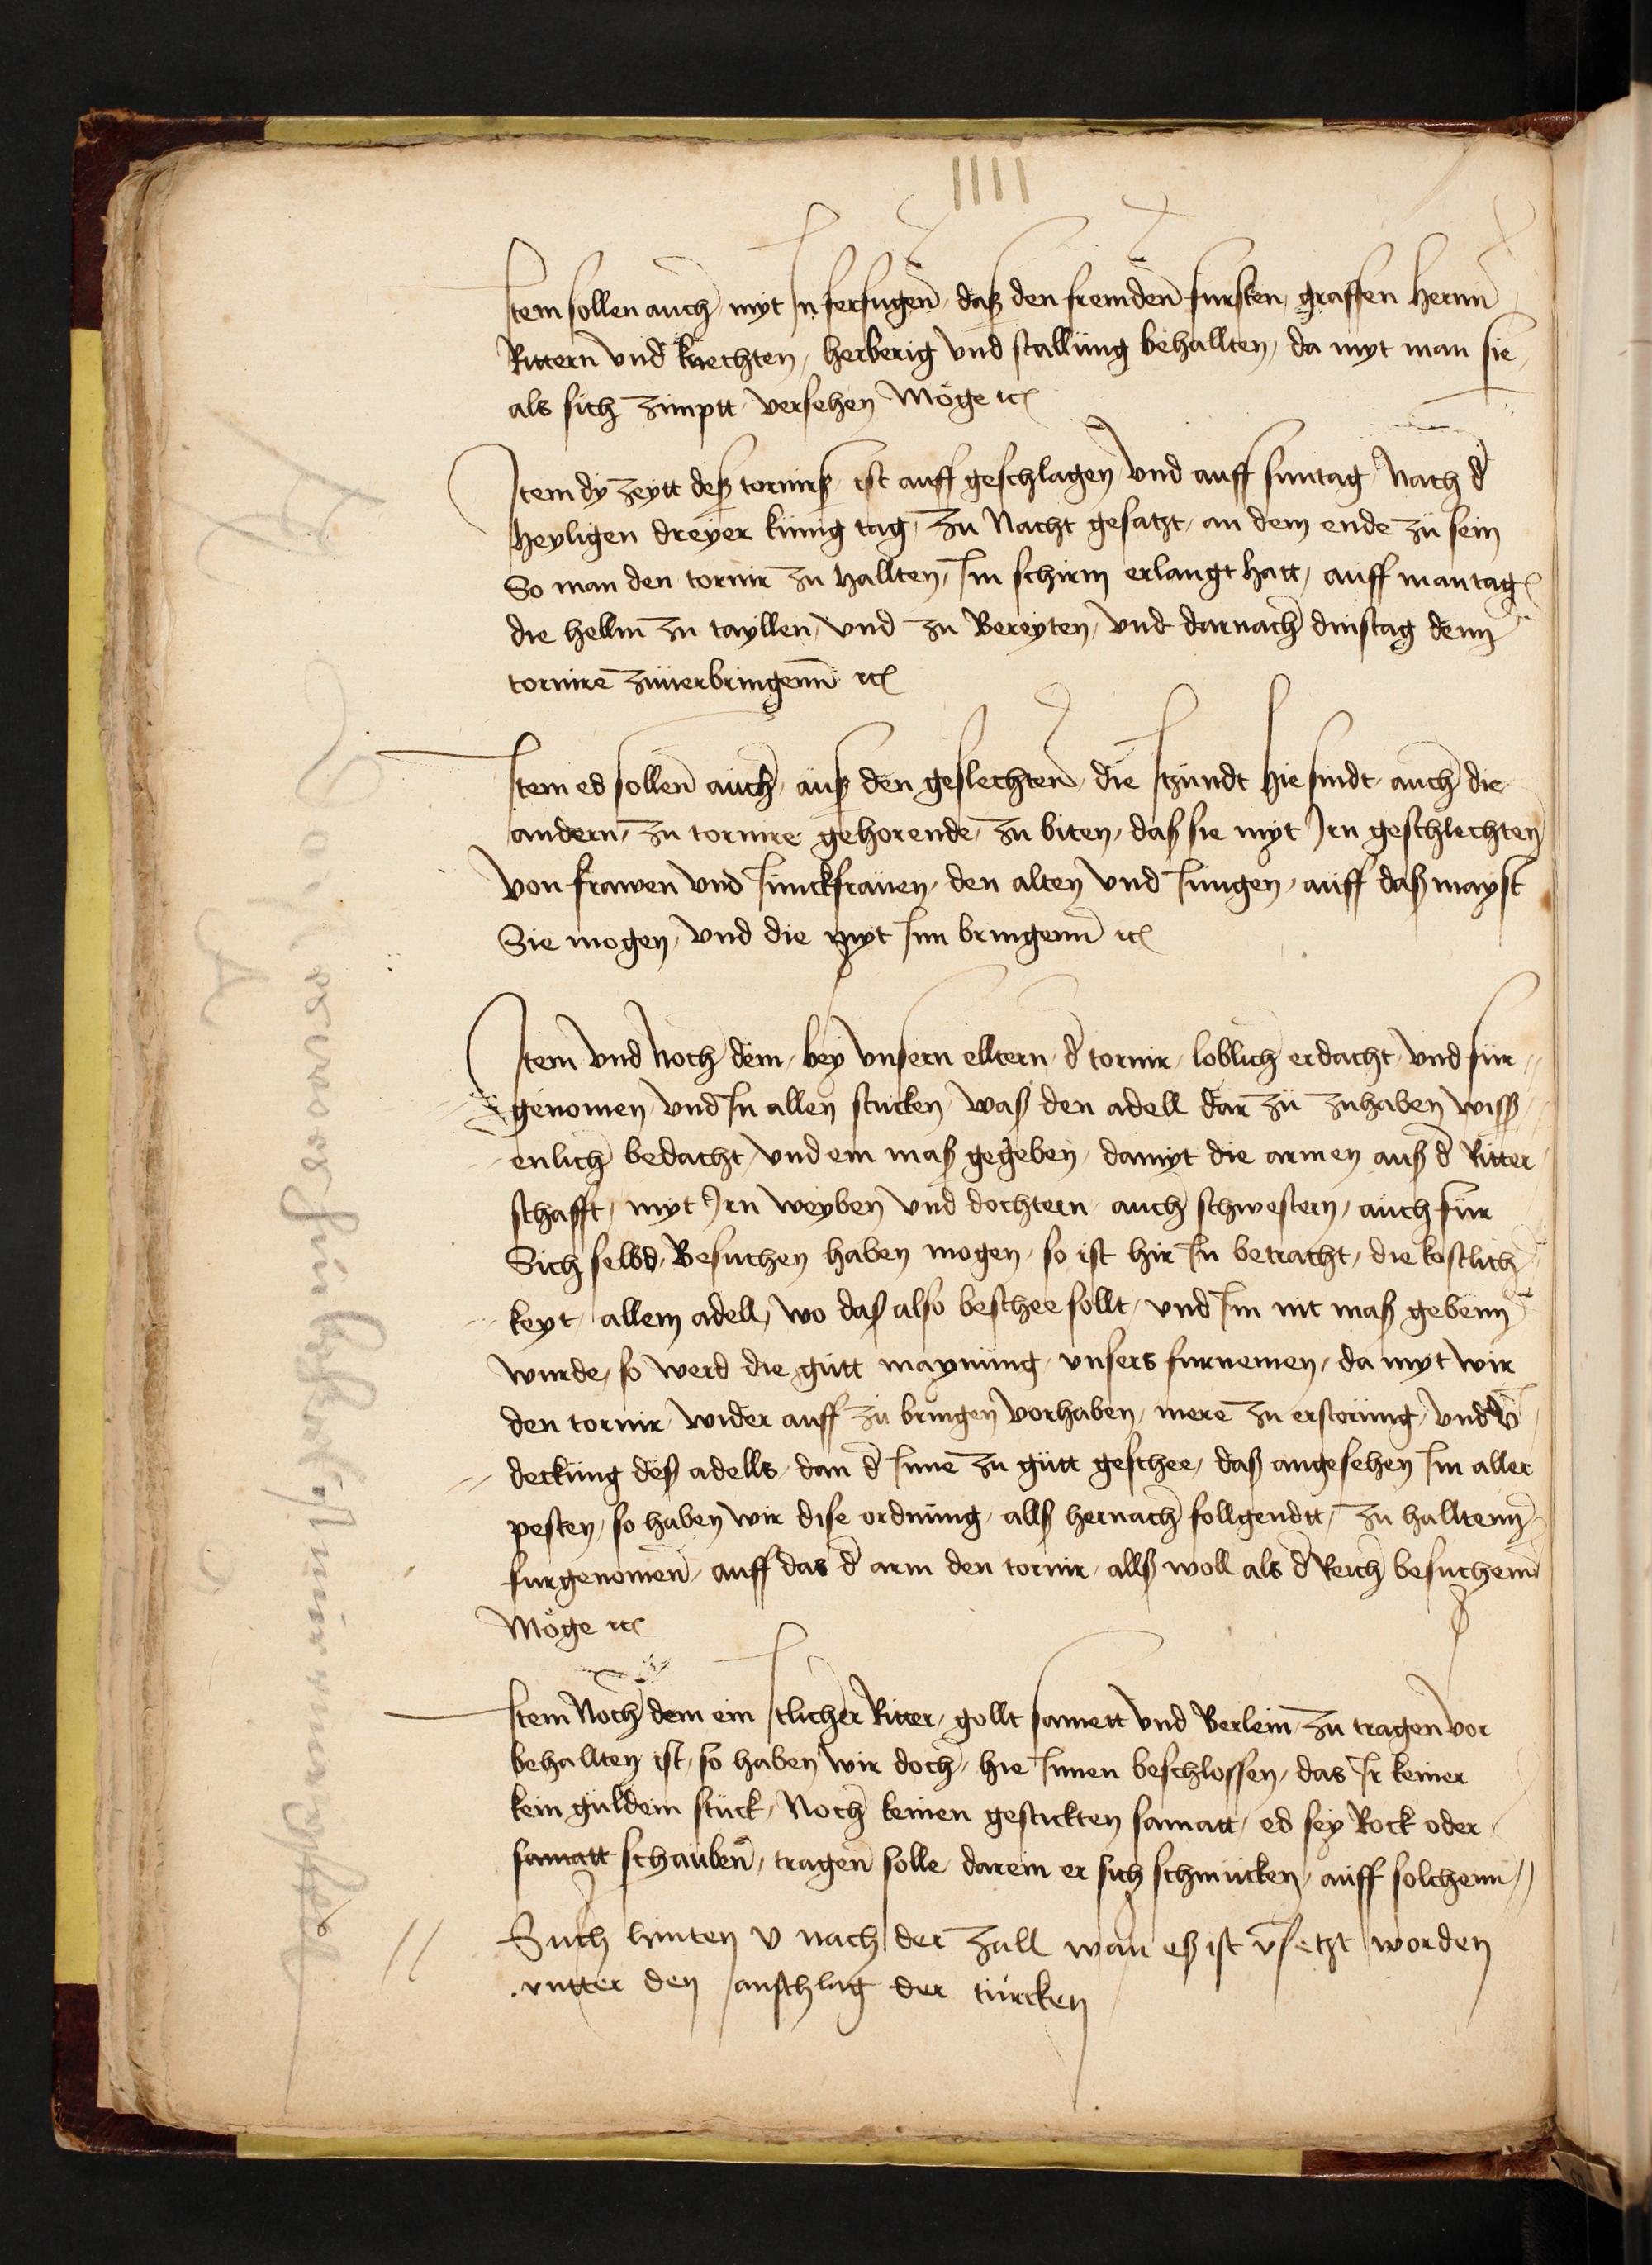 IIII
Item sollen auch myt In ferfugen, daß den fremden fursten, graffen hernn
Rittern vnd knechten, herberig vnd stallung behallten, da myt man sie
als sich zimptt versehen Möge etc
Item dy zeytt deß tornirß ist auff geschlagen vnd auff suntag Nach d̄
heyligen dreyer kunig tag, zu Nacht gesatzt, an dem ende zu sein
So man den tornir zu hallten, Im schirm erlangt hatt, auff mantag
die hellm zu tayllen, vnd zu Bereyten, vnd darnach dinstag denn
tornire zuuerbringenn etc
Item es sollen auch, auß den geslechten, die Itzundt hie sindt, auch die
andern, zu tornire gehorende, zu biten, daß sie myt Irn geschlechten
von frawen vnd Iunckfrauen, den alten vnd Iungen, auff daß mayst
Sie mogen, vnd die myt Inn bringenn etc
Item vnd Noch dem, bey vnsern elltern, d̄ tornir, loblich erdacht, vnd fur
genomen, vnd In allen stucken, waß den adell dar zu zuhaben wiss
enlich bedacht, vnd ein maß gegeben, damyt die armen auß d̄ Ritter
schafft, myt Irn weyben vnd dochtern, auch schwestern, auch fur
Sich selbs, Besuchen haben mogen, so ist hir In betracht, die kostlich
keyt, allem adell, wo daß also beschee sollt, vnd Im nit maß gebenn
wurde, so werd die gutt maynung, vnsers furnemen, da myt wir
den tornir, wider auff zu bringen vorhaben, mere zu erstorung, vnd v̄
deckung deß adells, dan d̄ Inne zu gutt geschee, daß angesehen Im aller
pesten, so haben wir dise ordnung, allß hernach follgendtt, zu halltenn
furgenomen, auff das d̄ arm den tornir, allß woll als d̄ Reich besuchenn
Möge etc
Item Noch dem ein Itlicher Ritter, gollt samett vnd Berlein zu tragen vor
behallten ist, so haben wir doch, hie Innen beschlossen, das Ir keiner
kein guldein stuck, Noch keinen gestickten samatt, es sey Rock oder
samatt schauben, tragen solle darein er sich schmucken, auff solchenn
Such hinten v nach der zall wan eß ist v̄setzt worden
vntter den anschlag der türcken